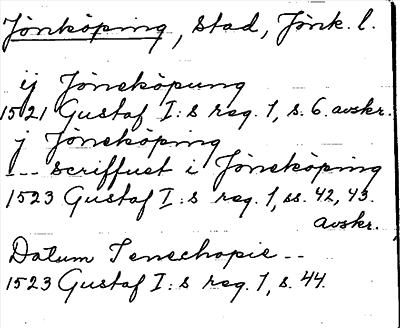 Jönköping, stad, Jönk. l.
ij Jöneköpung
1521 Gustaf I:s reg. 1, s. 6. avskr.
j Jöneköping
--- scriffuet i Jöneköping
1523 Gustaf I:s reg. 1, ss. 42, 43.
avskr.
Datum Jenechopie --
1523 Gustaf I:s reg. 1, s. 44.